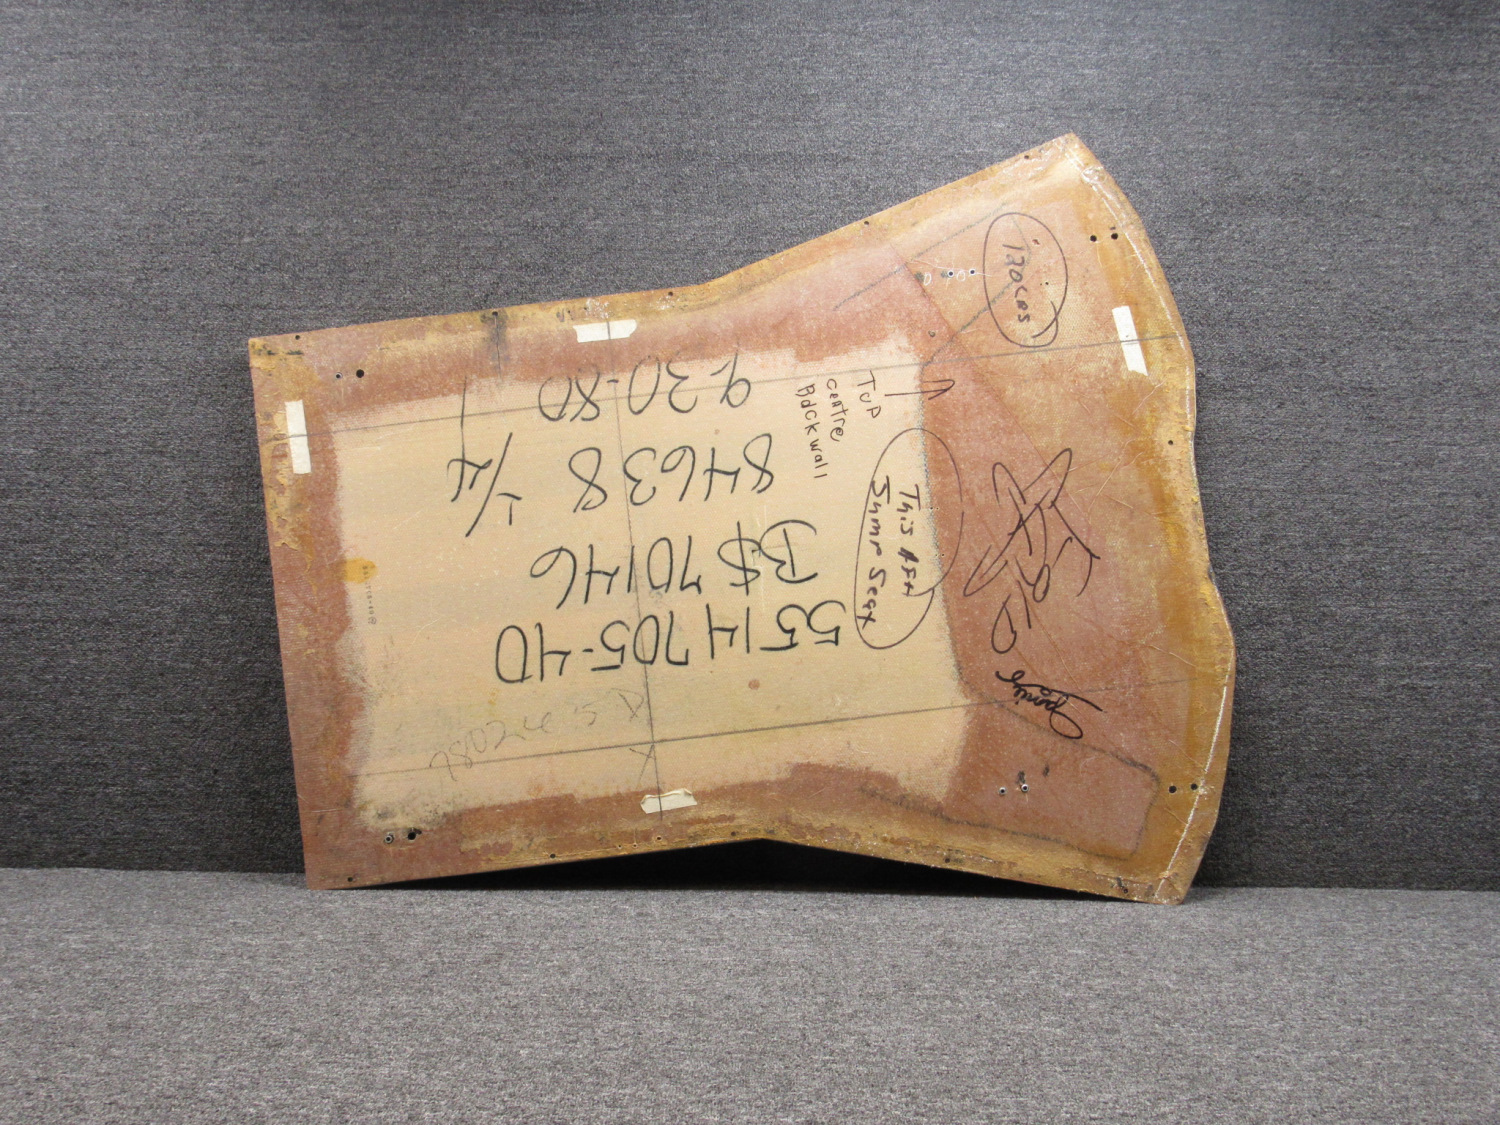 5514705-40
B$ 70146
84638 1/4
9-30-80
TOP
centre
Backwall
This AFH
Jump Seat
120CPS